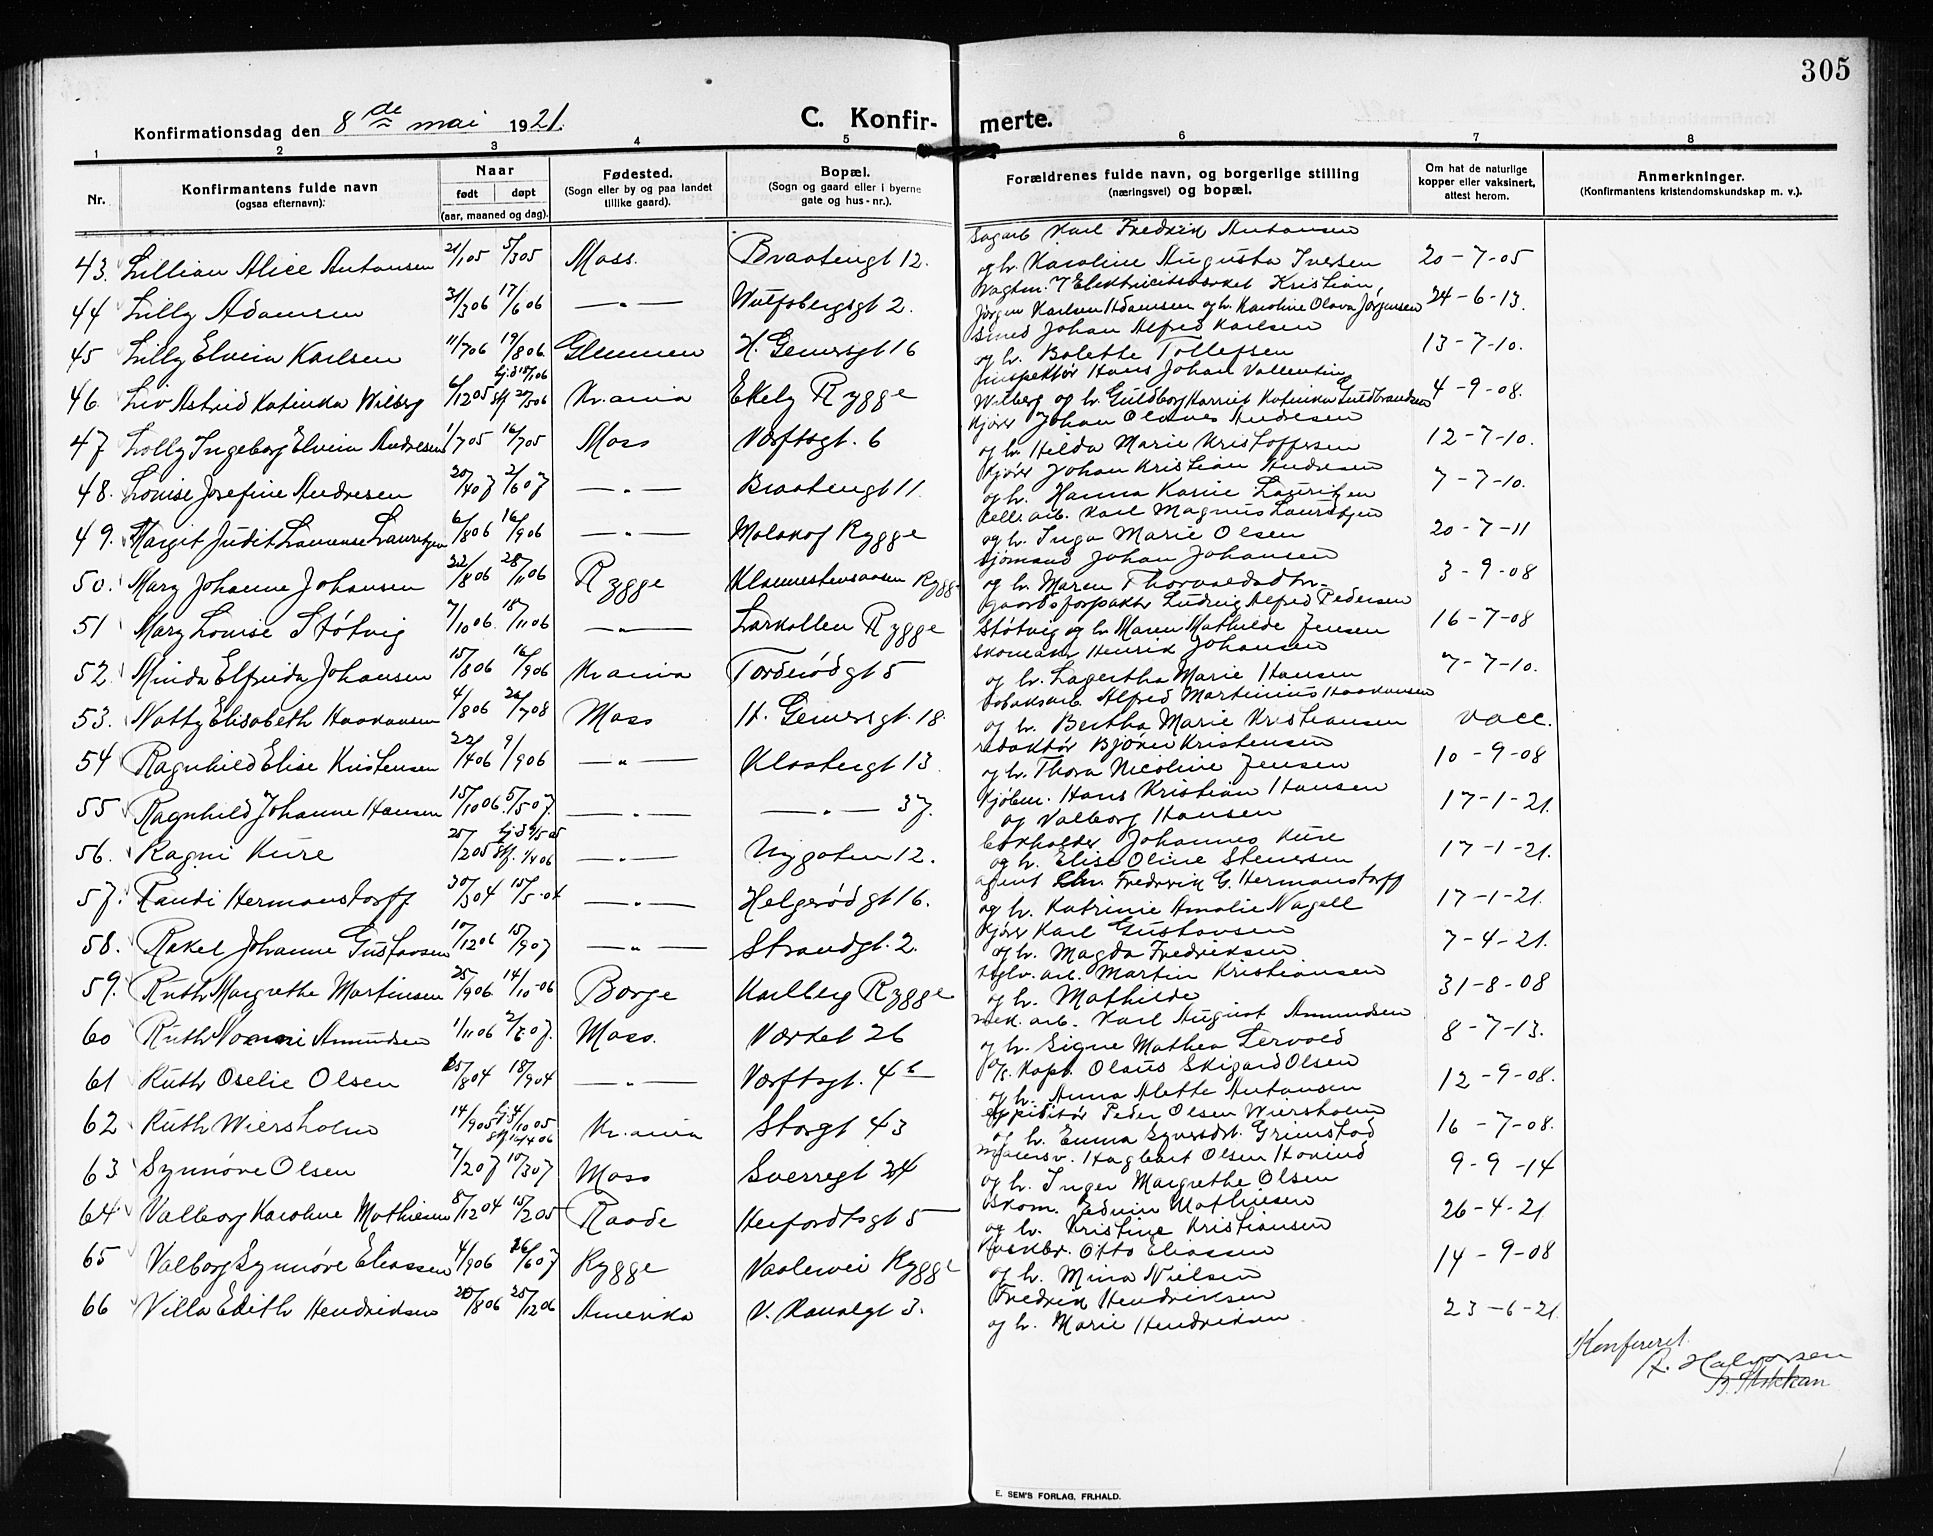 305
Konfirmationsdag den 8de mai 1921.
C. Konfir- merte.
1 2 3 4 5 6 7 8
Nr.
Konfirmantens fulde navn
(ogsaa efternavn):
Naar
født døpt
(aar, maaned og dag).
Fødested.
(Sogn eller by og paa landet
tillike gaard).
Bopæl.
(Sogn og gaard eller i byerne
gate og hus-nr.).
Forældrenes fulde navn, og borgerlige stilling
(næringsvei) og bopæl.
Om hat de naturlige
kopper eller vaksinert,
attest herom.
Anmerkninger.
(Konfirmantens kristendomskundskap m. v.).
Sagarb Karl Fredrik Antonsen
43. Lillian Alice Antonsen 21/1 05 5/3 05 Moss. Braatengt 12. og h. Karoline Augusta Iversen 20-7-05
Vagtm. v/ Elektricitetsverket Kristian
44 Lilly Adamsen 31/3 06 17/6 06 —"— Wulfsbergsgt 2. Jørgen Karlsen Adamsen og h. Karoline Olava Jørgensen 24-6-13.
smed Johan Alfred Karlsen
45 Lilly Elvein Karlsen 11/7 06 19/8 06. Glemmen H. Gernersgt 16 og h. Bolette Tollefsen 13-7-10.
hj.d 18/1 06 inspektør Hans Johan Vallentin
46. Liv Astrid Katinka Wilberg 6/12 05 Kr.ania Ekely Rygge Wilberg og h. Guldborg Harriet Katinka Guldbrandsen 4-9-08.
kjører Johan Olaves Andresen
47 Lolly Ingeborg Elvein Andresen 1/7 05 16/7 05 Moss Værftsgt. 6 og h. Hilda Marie Kristoffersen 12-7-10.
kjører Johan Kristian Andresen
48. Louise Josefine Andresen 20/4 07 2/6 07 —"— Braatengt 11 og h. Hanna Karine Lauritzen 7-7-10.
cell. arb. Karl Magnus Lauritzen
49. Margit Judit Lauritzen 6/8 06 16/9 06 —"— Molakof Rygge og h. Inga Marie Olsen 20-7-11
sjømand Johan Johansen
50. Mary Johanne Johansen 22/8 06 28/11 06 Rygge Rygge og h. Maren Thorvaldsdtr. 3-9-08
gaardsforpakter Ludvig Alfred Pedersen
51 Mary Louise Støtvig 7/10 06 18/11 06 —"— Larkollen Rygge Støtvig og h. Maren Mathilde Jensen 16-7-08
skomaker Henrik Johansen
52. Minda Elfrida Johansen 15/8 06 16/9 06 Kr.ania Tordenrødgt 5 og h. Lagertha Marie Hansen 7-7-10.
tobaksarb. Alfred Martinius Haakonsen
53. Natty Elisabeth Haakonsen 4/8 06 26/7 08 Moss H. Gernersgt. 18. og h. Bertha Marie Kristiansen vacc.
redaktør Bjørn Kristensen
54 Ragnhild Elise Kristensen 22/4 06 9/9 06 —"— Klostergt 13 og h. Thora Nicoline Jensen 10-9-08
kjøbm. Hans Kristian Hansen
55 Ragnhild Johanne Hansen 15/10 06. 5/5 07. —"— —"— 37. og Valborg Hansen 17-1-21.
Johannes Kure
56. Ragni Kure 25/2 05 Nygaten 12. og h. Elise Oline Stenersen 17-1-21.
agent Fredrik G. Hermanstorff
57. Randi Hermanstorff 30/3 04 15/5 04 —"— Helgerødgt 16. og h. Katrine Amalie Nagell 17-1-21.
kjører Karl Gustavsen
58. Rakel Johanne Gustavsen 10/12 06 15/9 07 —"— Strandgt. 2. og h. Magda Fredriksen 7-4-21.
teglv. arb. Martin Kristiansen
59. Ruth Margrethe Martinsen 25/9 06 14/10 06 Borge Karlberg Rygge og h. Mathilde 31-8-08
mek. arb. Karl August Amundsen
60 Ruth Amundsen 1/11 06 Moss. Værket 26 og h. Signe Mathea Lervold 8-7-13.
Olaus Skigard Olsen
61 Ruth Oselie Olsen 25/8 04 18/9 04 —"— Værftsgt. 4b og h. Anna Alette Antonsen 12-9-08.
expeditør Peder Olsen Wiersholm
62 Ruth Wiersholm 14/9 05 Kr.ania Storgt 43 og h. Emma Syversdt. Grimstad 16-7-08.
Hagbart Olsen Hovind
63 Synnøve Olsen 7/2 07 10/3 07 Moss Sverregt 24 og h. Inger Margrethe Olsen 9-9-14
skom. Edvin Mathiesen
64. Valborg Karoline Mathiesen 8/12 04 15/2 05 Raade Herfordtsgt 5 og h. Kristine Kristiansen 26-4-21
Otto Eliassen
65 Valborg Synnøve Eliassen 4/9 06 26/6 07 Rygge Vaalervei Rygge og h. Mina Nielsen 14-9-08
Fredrik Hendriksen
66 Villa Edith Hendriksen 20/8 06 25/12 06 Amerika V. Kanalgt 3. og h. Marie Hendriksen 23-6-21
Konfereret.
R. Halvorsen
E. SEM'S FORLAG, FR.HALD.